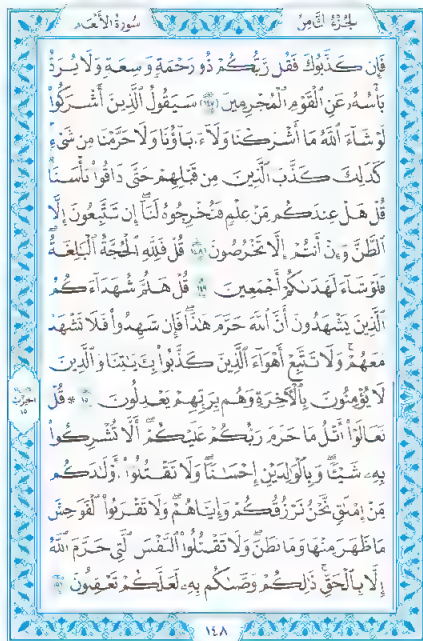 الجزء الثامن سورة الأنعام
فَإِن كَذَّبُوكَ فَقُل رَّبُّكُمْ ذُو رَحْمَةٍ وَٰسِعَةٍ وَلَا يُرَدُّ
بَأْسُهُۥ عَنِ ٱلْقَوْمِ ٱلْمُجْرِمِينَ ١٤٧ سَيَقُولُ ٱلَّذِينَ أَشْرَكُوا۟
لَوْ شَآءَ ٱللَّهُ مَآ أَشْرَكْنَا وَلَآ ءَابَآؤُنَا وَلَا حَرَّمْنَا مِن شَىْءٍ
كَذَٰلِكَ كَذَّبَ ٱلَّذِينَ مِن قَبْلِهِمْ حَتَّىٰ ذَاقُوا۟ بَأْسَنَا
قُلْ هَلْ عِندَكُم مِّنْ عِلْمٍ فَتُخْرِجُوهُ لَنَآ إِن تَتَّبِعُونَ إِلَّا
ٱلظَّنَّ وَإِنْ أَنتُمْ إِلَّا تَخْرُصُونَ ١٤٨ قُلْ فَلِلَّهِ ٱلْحُجَّةُ ٱلْبَٰلِغَةُ
فَلَوْ شَآءَ لَهَدَىٰكُمْ أَجْمَعِينَ ١٤٩ قُلْ هَلُمَّ شُهَدَآءَكُمُ
ٱلَّذِينَ يَشْهَدُونَ أَنَّ ٱللَّهَ حَرَّمَ هَٰذَا فَإِن شَهِدُوا۟ فَلَا تَشْهَدْ
مَعَهُمْ وَلَا تَتَّبِعْ أَهْوَآءَ ٱلَّذِينَ كَذَّبُوا۟ بِـَٔايَٰتِنَا وَٱلَّذِينَ
لَا يُؤْمِنُونَ بِٱلْءَاخِرَةِ وَهُم بِرَبِّهِمْ يَعْدِلُونَ ١٥٠ * قُلْ
تَعَالَوْا۟ أَتْلُ مَا حَرَّمَ رَبُّكُمْ عَلَيْكُمْ أَلَّا تُشْرِكُوا۟
بِهِۦ شَيْـًٔا وَبِٱلْوَٰلِدَيْنِ إِحْسَٰنًا وَلَا تَقْتُلُوٓا۟ أَوْلَٰدَكُم
مِّنْ إِمْلَٰقٍ نَّحْنُ نَرْزُقُكُمْ وَإِيَّاهُمْ وَلَا تَقْرَبُوا۟ ٱلْفَوَٰحِشَ
مَا ظَهَرَ مِنْهَا وَمَا بَطَنَ وَلَا تَقْتُلُوا۟ ٱلنَّفْسَ ٱلَّتِى حَرَّمَ ٱللَّهُ
إِلَّا بِٱلْحَقِّ ذَٰلِكُمْ وَصَّىٰكُم بِهِۦ لَعَلَّكُمْ تَعْقِلُونَ ١٥١
١٤٨